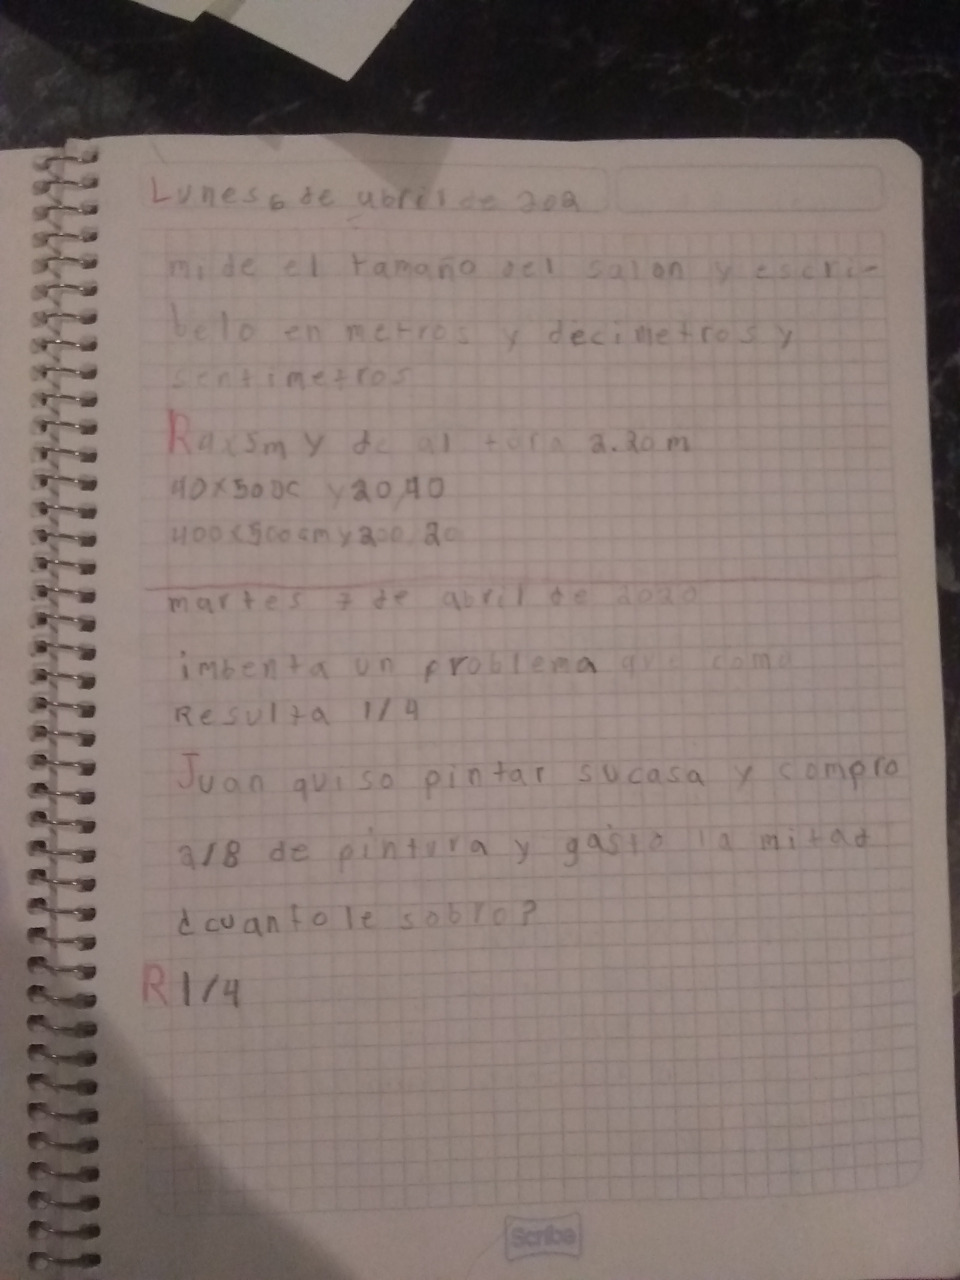 Lunes 6 de abril de 202
mide el tamaño del salon y escri-
belo en metros y decimetros y
sentimetros
R 4x5m y de al tura 2.20 m
40x50 DC y 20,40
400x500cm y 200 20
martes 7 de abril de 2020
imbenta un problema que como
Resulta 1/4
Juan quiso pintar su casa y compro
2/8 de pintura y gasto la mitad
¿cuanto le sobro?
R 1/4
Scribe